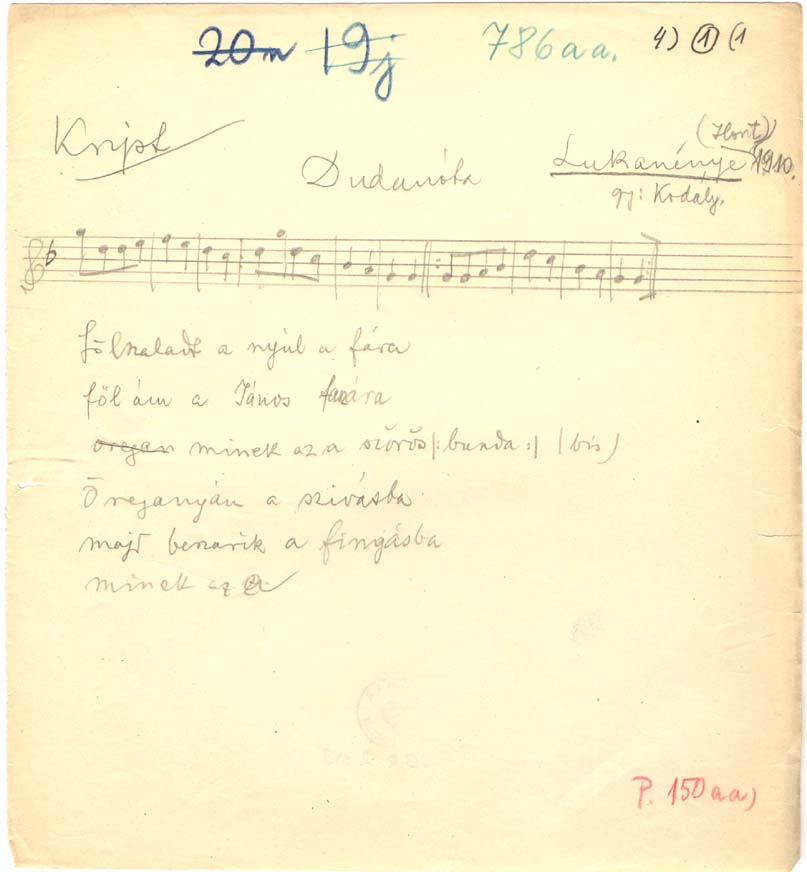 20m 19j 786aa. 4) 1 (1
Kript
(Hont)
Dudanóta Lukanénye 1910.
gy: Kodály.
Fölszaladt a nyúl a fára
föl ám a János fara
oregan minek az a szőrös |: bunda :| (bis)
Öreganyám a szivásba
majd beszarik a fingásba
minek az a
P. 150aa)